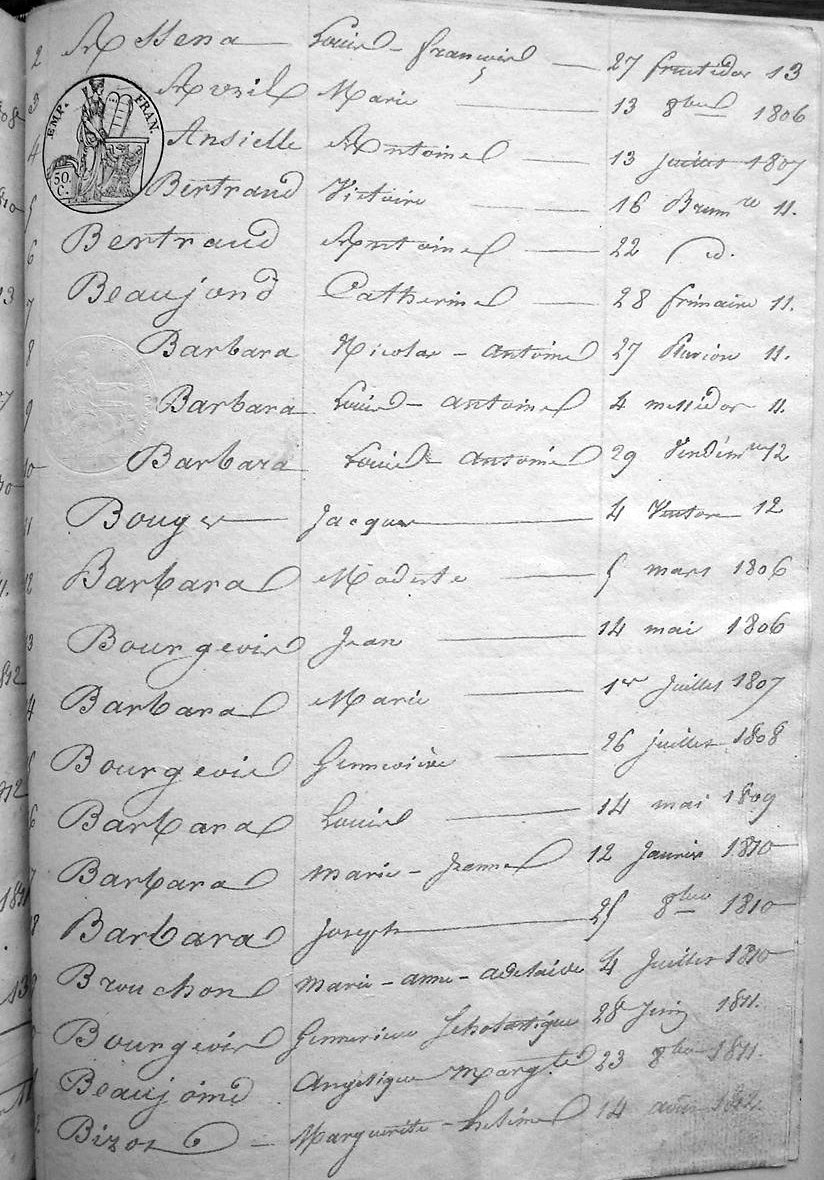 2 Assena Louis - françois 27 fructidor 13
3 Avril Marie 13 8bre 1806
EMP. FRAN.
50 C.
4 Ansielle Antoine 13 juillet 1807
5 Bertrand Victoire 16 Brumre 11.
6 Bertrand Antoine 22 id.
7 Beaujond Catherine 28 frimaire 11.
8 Barbara Nicolas - antoine 27 11.
9 Barbara Louis - antoine 4 messidor 11.
10 Barbara Louis - antoine 29 Vendémre 12
11 Bouger Jacques 4 Ventose 12
12 Barbara Modeste 5 mars 1806
13 Bourgeois Jean 14 mai 1806
14 Barbara Marie 1er Juillet 1807
Bourgeois Gennevière 26 juillet 1808
6 Barbara Louis 14 mai 1809
7 Barbara marie - Jeanne 12 Janvier 1810
8 Barbara Joseph 25 8bre 1810
Brouchon marie - anne - adelaide 4 Juillet 1810
Bourgeois Scholastique 28 Juin 1811.
Beaujoind Angelique Margte 23 8bre 1811.
Bizot Marguerite - 14 août 1812.